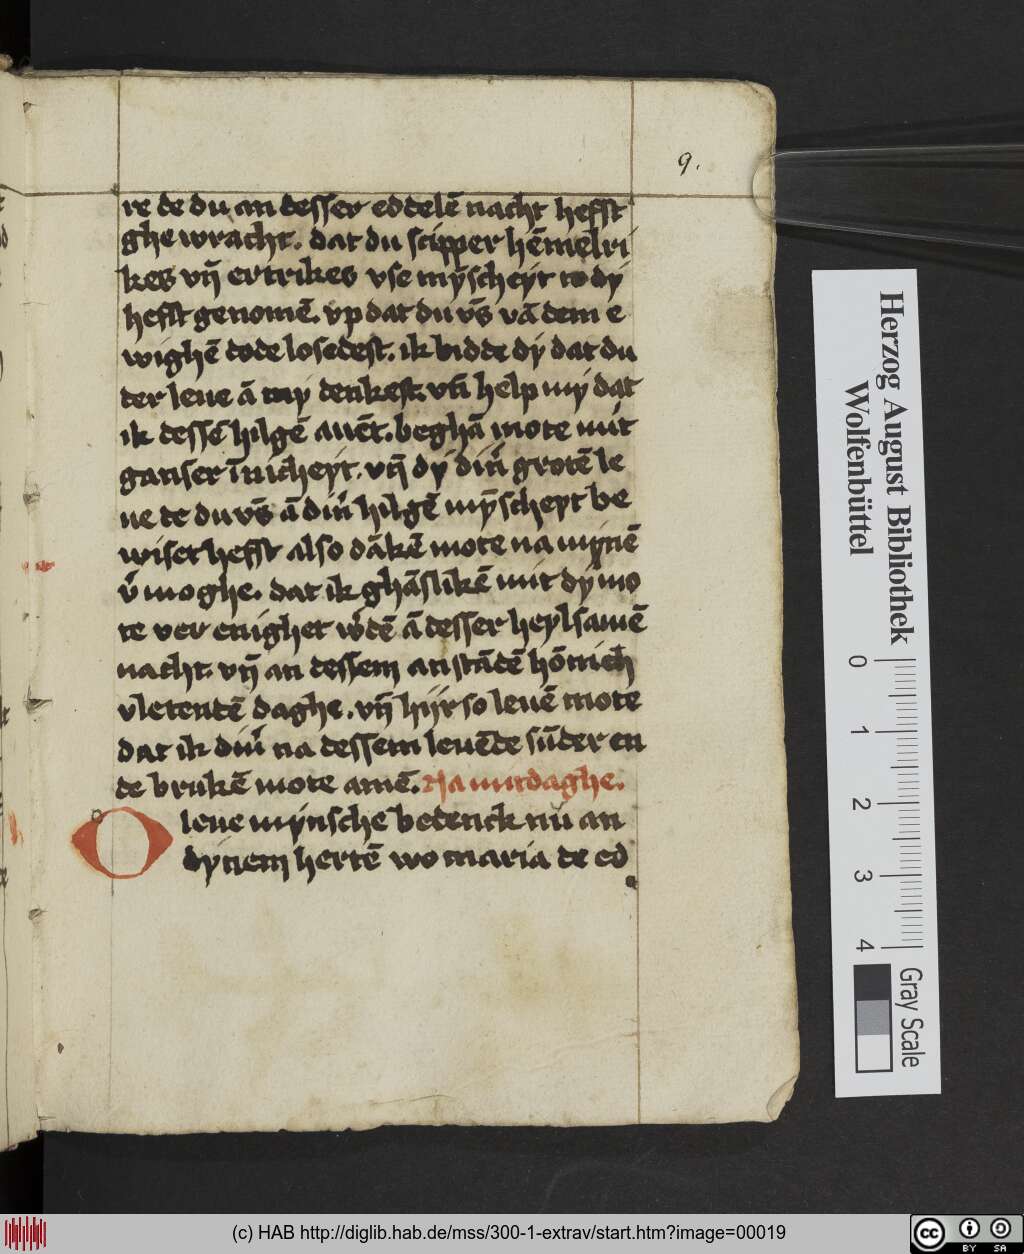 9.
re de du an desser eddelē nacht hefft
ghewracht. dat du scipper hēmelri
kes vn̄ ertrikes vse mȳscheyt to dy
hefft genomē. vp dat du vs̄ vā dem e
wighē dode losedest. ik bidde dy dat du
der leue ā my denkest. vn̄ help my dat
ik dessē hilgē auēt. beghā mote mit
ganser īnicheyt. vn̄ dy din̉ grotē le
ue de du vs̄ ā din̉ hilgē mȳscheyt be
wiset hefft also dākē mote na mynē
v̉moghe. dat ik ghāslikē mit dy mo
te ver enighet w̉dē ā desser heylsamē
nacht. vn̄ an dessem anstādē hōnich
vletendē daghe. vn̄ hijr so leuē mote
dat ik din̉ na dessem leuēde sūder en
de brukē mote amē. Na mitdaghe.
O leue mynsche bedenck nu an
dynem hertē wo maria de ed
Herzog August Bibliothek
Wolfenbüttel
0 1 2 3 4
Gray Scale
(c) HAB http://diglib.hab.de/mss/300-1-extrav/start.htm?image=00019
cc BY SA